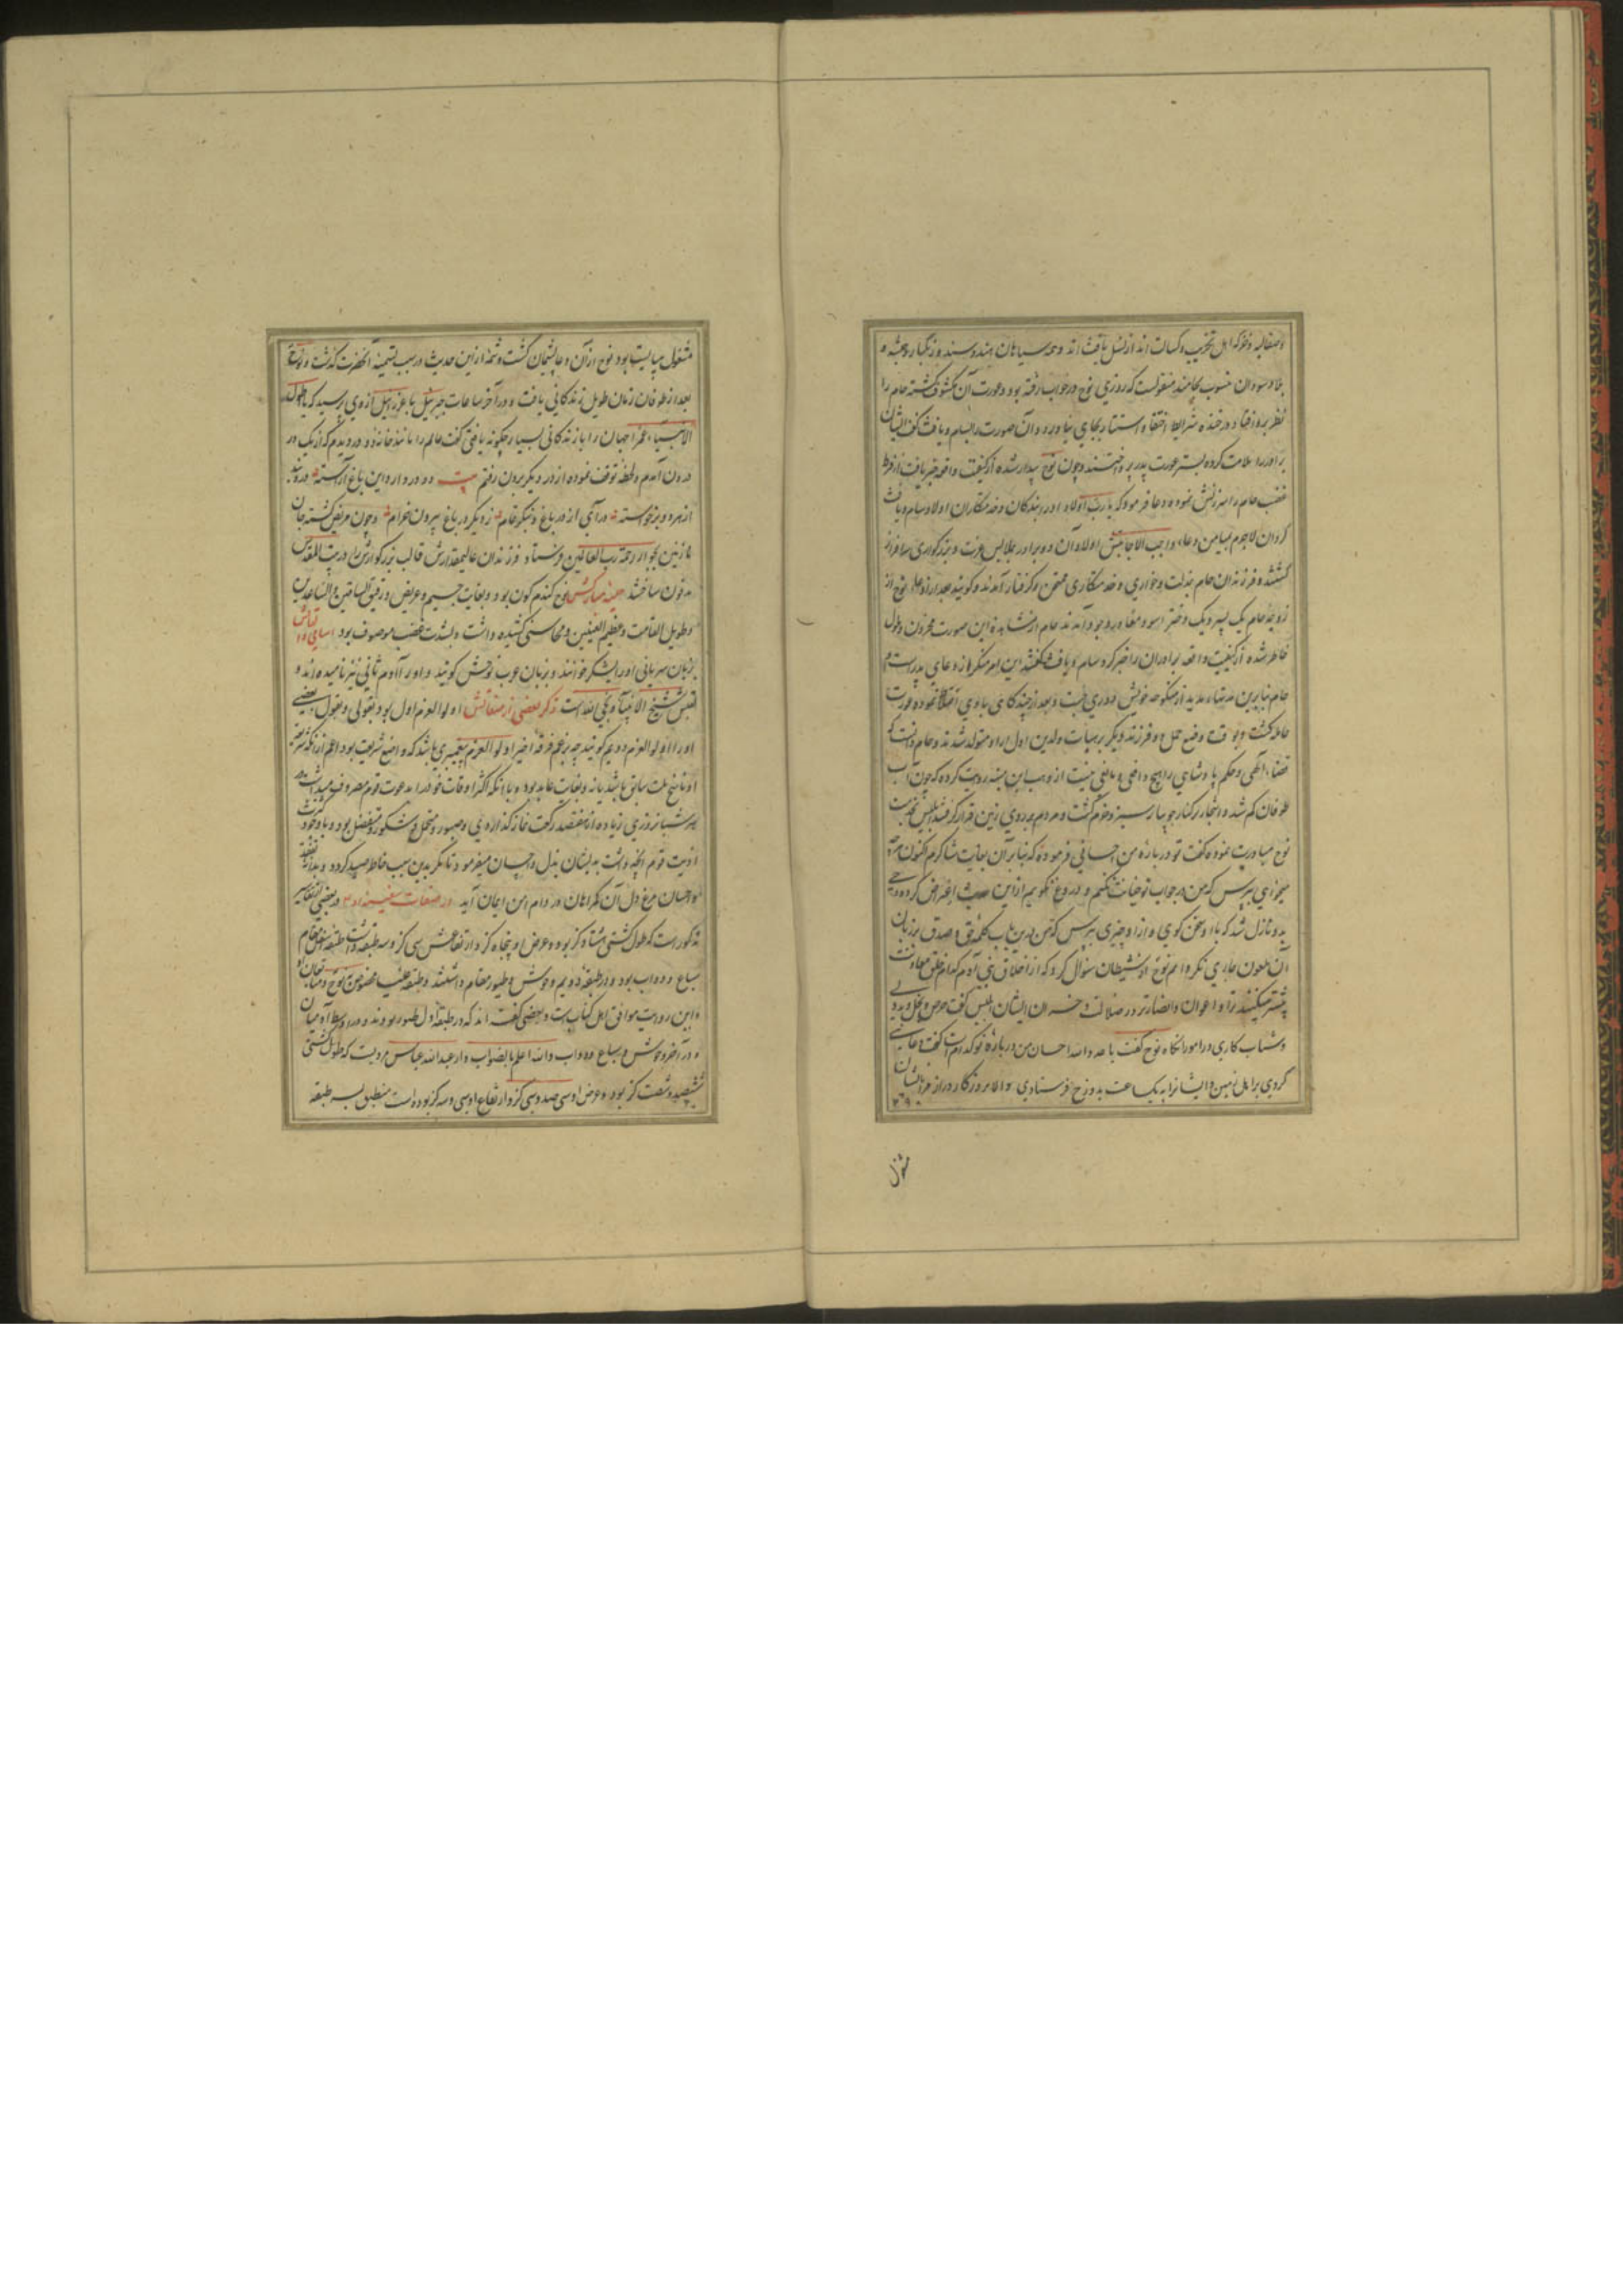 وصقالیه وغز که اهل تخریب و کسالت اند از نسل یافث اند و همه سیاهان هند و سند و زنگبار و حبشه و
بلاد سودان منسوب بحامند منقولست که روزی نوح در خواب رفته بود و عورت آن مکشوف گشته حام را
نظر بر او افتاد در خنده شد شرایط اختفا و استتار بجای نیاورد و آن صورت را بسام و یافث گفت ایشان
برادر را ملامت کرده بستر عورت پدر پرداختند و چون نوح بیدار شده از کیفیت واقعه خبر یافت از فرط
غضب حام را سرزنش نموده دعا فرمود که یا رب اولاد او را بندگان و خدمتکاران اولاد سام و یافث
گردان لاجرم بمیامن دعاء واجب الاجابتش اولاد آن دو برادر بملابس عزت و بزرگواری سرافراز
گشتند و فرزندان حام بمذلت و خواری و خدمتکاری ممتحن و گرفتار آمدند و گویند بعد از دعاء نوح از
زوجه حام یک پسر و یک دختر اسود معا بوجود آمدند حام از مشاهدة این صورت محزون و ملول
خاطر شده از کیفیت واقعه برادران را خبر کرد سام و یافث گفتند این امر منکر از دعای پدر است و
حام بنابرین مدتهاء مدید از منکوحه خویش دوری جست و بعد از چندگاهی با وی اختلاط نموده عورت
حامله گشت و بوقت وضع حمل دو فرزند دیگر بر هیأت ولدین اول ازو متولد شدند و حام دانست که
قضاء الهی و حکم پادشاهی را هیچ دافعی و مانعی نیست از وهب بن منبه روایت کرده که چون آب
طوفان کم شد و اشجار بر کنار جویبار سبز و خرم گشت و مردم بر روی زمین قرار گرفتند ابلیس بخدمت
نوح مبادرت نموده گفت تو در باره من احسانی فرموده که بنابر آن بغایت شاکرم اکنون هرچه
میخواهی بپرس که من در جواب تو خیانت نکنم و دروغ نگویم از این حدیث اعراض کرده وحی
بدو نازل شد که با او سخن گوی و ازو چیزی بپرس که من بدین باب کلمه حق و صدق بر زبان
آن ملعون جاری نگردانم نوح از شیطان سؤال کرد که از اخلاق بنی آدم کدام خلق معاونت
بیشتر میکنند ترا و اعوان و انصار ترا در ضلالت و خسران ایشان ابلیس گفت حرص و بخل و حسد
و شتاب کاری در امور آنگاه نوح گفت یا عدو الله احسان من در باره تو کدام است گفت دعایی
کردی بر اهل زمین و ایشانرا بیک ساعت بدوزخ فرستادی والا روزگار دراز بفریب ایشان
مشغول
مشغول میبایست بود نوح از آن دعا پشیمان گشت و شمهٔ از این حدیث در سبب تسمیهٔ آنحضرت گذشت و نوح
بعد از طوفان زمان طویل زندگانی یافت و در آخر ساعات جبرئیل با عزرائیل از وی پرسید که یا اطول
الانبیاء عمرا جهان را با زندگانی بسیار چگونه یافتی گفت عالم را مانند خانهٔ دو در دیدم که از یک در
درون آمدم و لحظهٔ توقف نموده از در دیگر بیرون رفتم بیت دو در دارد این باغ آراسته در و بند
از هر دو برخواسته درآی از در باغ و بنگر تمام ز دیگر در باغ بیرون خرام و چون مریض گشته جان
نازنین بجوار رحمة رب العالمین فرستاد فرزندان عالیمقدارش قالب بزرگوارش را در بیت المقدس
مدفون ساختند حلیه مبارکش نوح گندم گون بود و بغایت جسیم و عریض و رقیق الساقین و الساعدین
و طویل القامت و عظیم العینین و محاسنی کشیده داشت و بشدت غضب موصوف بود اسامی و القابش
بزبان سریانی او را یشکر خوانند و بزبان عرب نوحش گویند و او را آدم ثانی نیز نامیده اند و
لقبش شیخ الانبیاء و نجی الله است ذکر بعضی از صفاتش اولوالعزم اول بود بقولی و بقول بعضی
او را اولوالعزم دویم گویند چه بزعم فرقهٔ اخیر اولوالعزم پیغمبری باشد که واضع شریعت بود اعم از آنکه شریعت
او ناسخ ملت سابق باشد یا نه و بغایت عابد بود و با آنکه اکثر اوقات خود را بدعوت قوم مصروف میداشت در
هر شبانروزی زیاده از هفتصد رکعت نماز گذاردی و صبور و متحمل و شکور و متفضل بود و با وجود کثرت
اذیت قوم آنچه داشت بدیشان بذل و احسان میفرمود تا مگر بدین سبب خاطر صید گردد و بدانهٔ تفقد
و احسان مرغ دل آن گمراهان در دام امن ایمان آید در صفات سفینه او در بعضی تفاسیر
مذکور است که طول کشتی هشتاد گز بود و عرض او پنجاه گز و ارتفاعش سی گز و سه طبقه داشت طبقه سفلی مقام
سباع و دواب بود و در طبقهٔ دویم وحوش و طیور مقام داشتند و طبقه علیا مخصوص نوح و متابعان او
و این روایت موافق اهل کتاب است و بعضی گفته اند که در طبقه اول طیور بودند و در اوسط آدمیان
و در آخر وحوش و سباع و دواب والله اعلم بالصواب و از عبدالله عباس مرویست که طول کشتی
ششصد و شصت گز بود و عرض او سیصد و سی گز و ارتفاع او سی و سه گز بوده است منطبق بسه طبقه